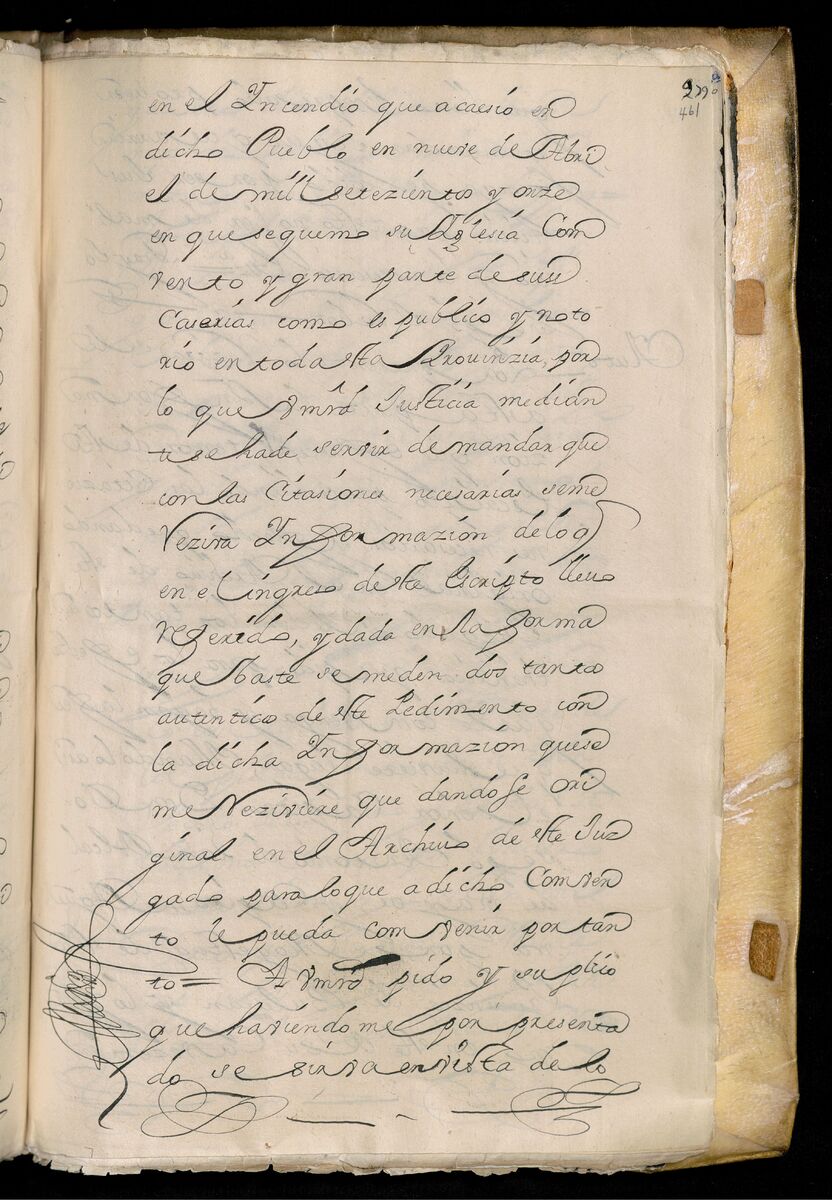 461
en el Yncendio que acaesio en
dicho Pueblo en nueve de Abri
el de mill setezientos y onze
en que sequemo su Yglesia Com
vento y gran parte de suss
Caserias como es publico y noto
rio en toda esta Provinzia, por
lo que Vmrd Justicia median
te se hade servir de mandar que
con las Citasiones necesarias seme
Reziva Ynformazion de lo q
en el ingreso deste Escripto llevo
referido, y dada en la forma
que baste se meden dos tantos
autenticos de este Pedimento con
la dicha Ynformazion quese
me Reziviere que dandose ori
ginal en el Archivo de este Juz
gado para lo que a dicho Comven
to le pueda comvenir por tan
to = A Vmrd pido y suplico
que haviendome por presenta
do se sirva en vista de lo